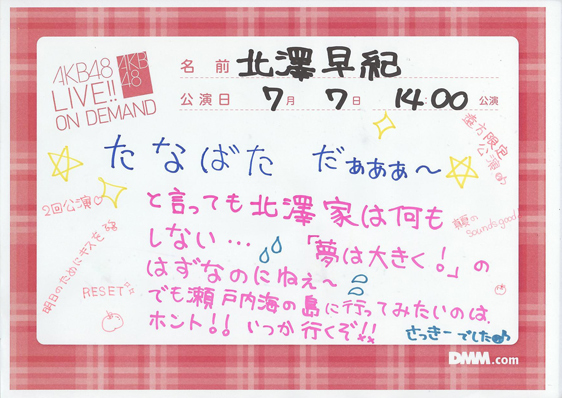 AKB48
LIVE!!
ON DEMAND
AKB
48
名前 北澤早紀
公演日 7月 7日 14:00 公演
たなばた だぁぁぁ〜
遠方限定
公演
2回公演
明日のためにキスを
RESET
Sounds good
と言っても北澤家は何も
しない… 「夢は大きく!」の
はずなのにねぇ〜
でも瀬戸内海の島に行ってみたいのは、
ホント!! いつか行くぞ!!
さっきーでした
DMM.com